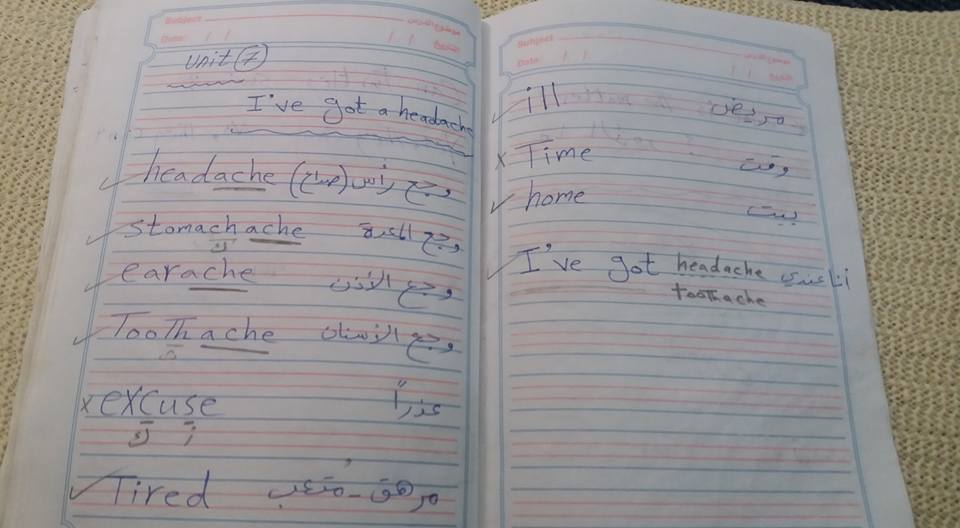 Subject موضوع الدرس
Date: / / / / التاريخ
Unit 7
I've got a headache
✓ headache وجع رأس (صداع)
✓ stomachache وجع المعدة
ك
✓ earache وجع الأذن
✓ Toothache وجع الأسنان
ث
x excuse عذراً
ك ز
✓ Tired مرهق - مُتعب
Subject موضوع الدرس
Date: / / / / التاريخ
✓ ill مريض
x Time وقت
✓ home بيت
✓ I've got headache أنا عندي
toothache